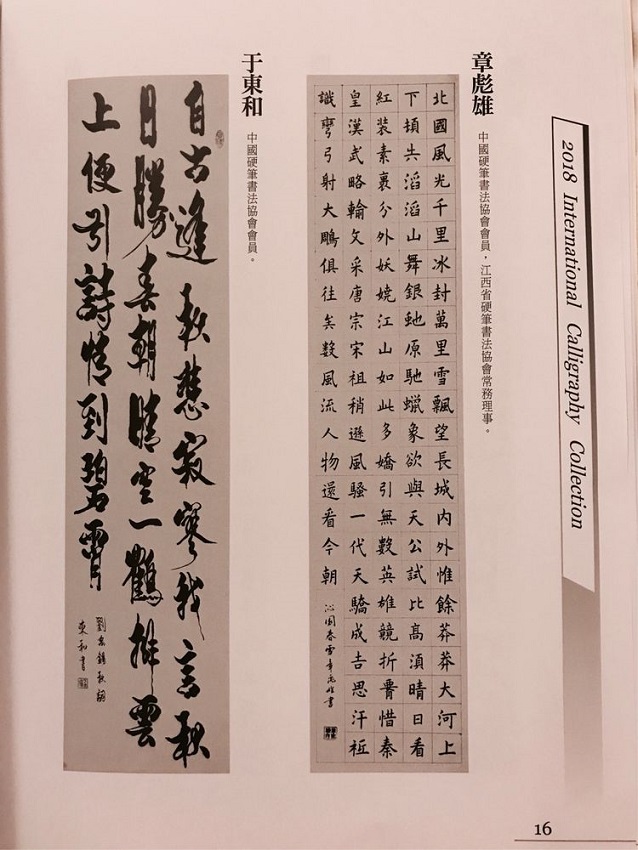 2018 International Calligraphy Collection
章彪雄
中國硬筆書法協會會員，江西省硬筆書法協會常務理事。
北國風光千里冰封萬里雪飄望長城內外惟餘莽莽大河上
下頓失滔滔山舞銀虵原馳蠟象欲與天公試比高湏晴日看
紅装素裹分外妖嬈江山如此多嬌引無數英雄競折腰惜秦
皇漢武略輸文采唐宗宋祖稍遜風騷一代天驕成吉思汗祗
識彎弓射大鵰俱往矣數風流人物還看今朝
沁園春雪章彪雄書
于東和
中國硬筆書法協會會員。
自古逢秋悲寂寥我言秋
日勝春朝晴空一鶴排雲
上便引詩情到碧霄
劉禹錫秋詞
東和書
16